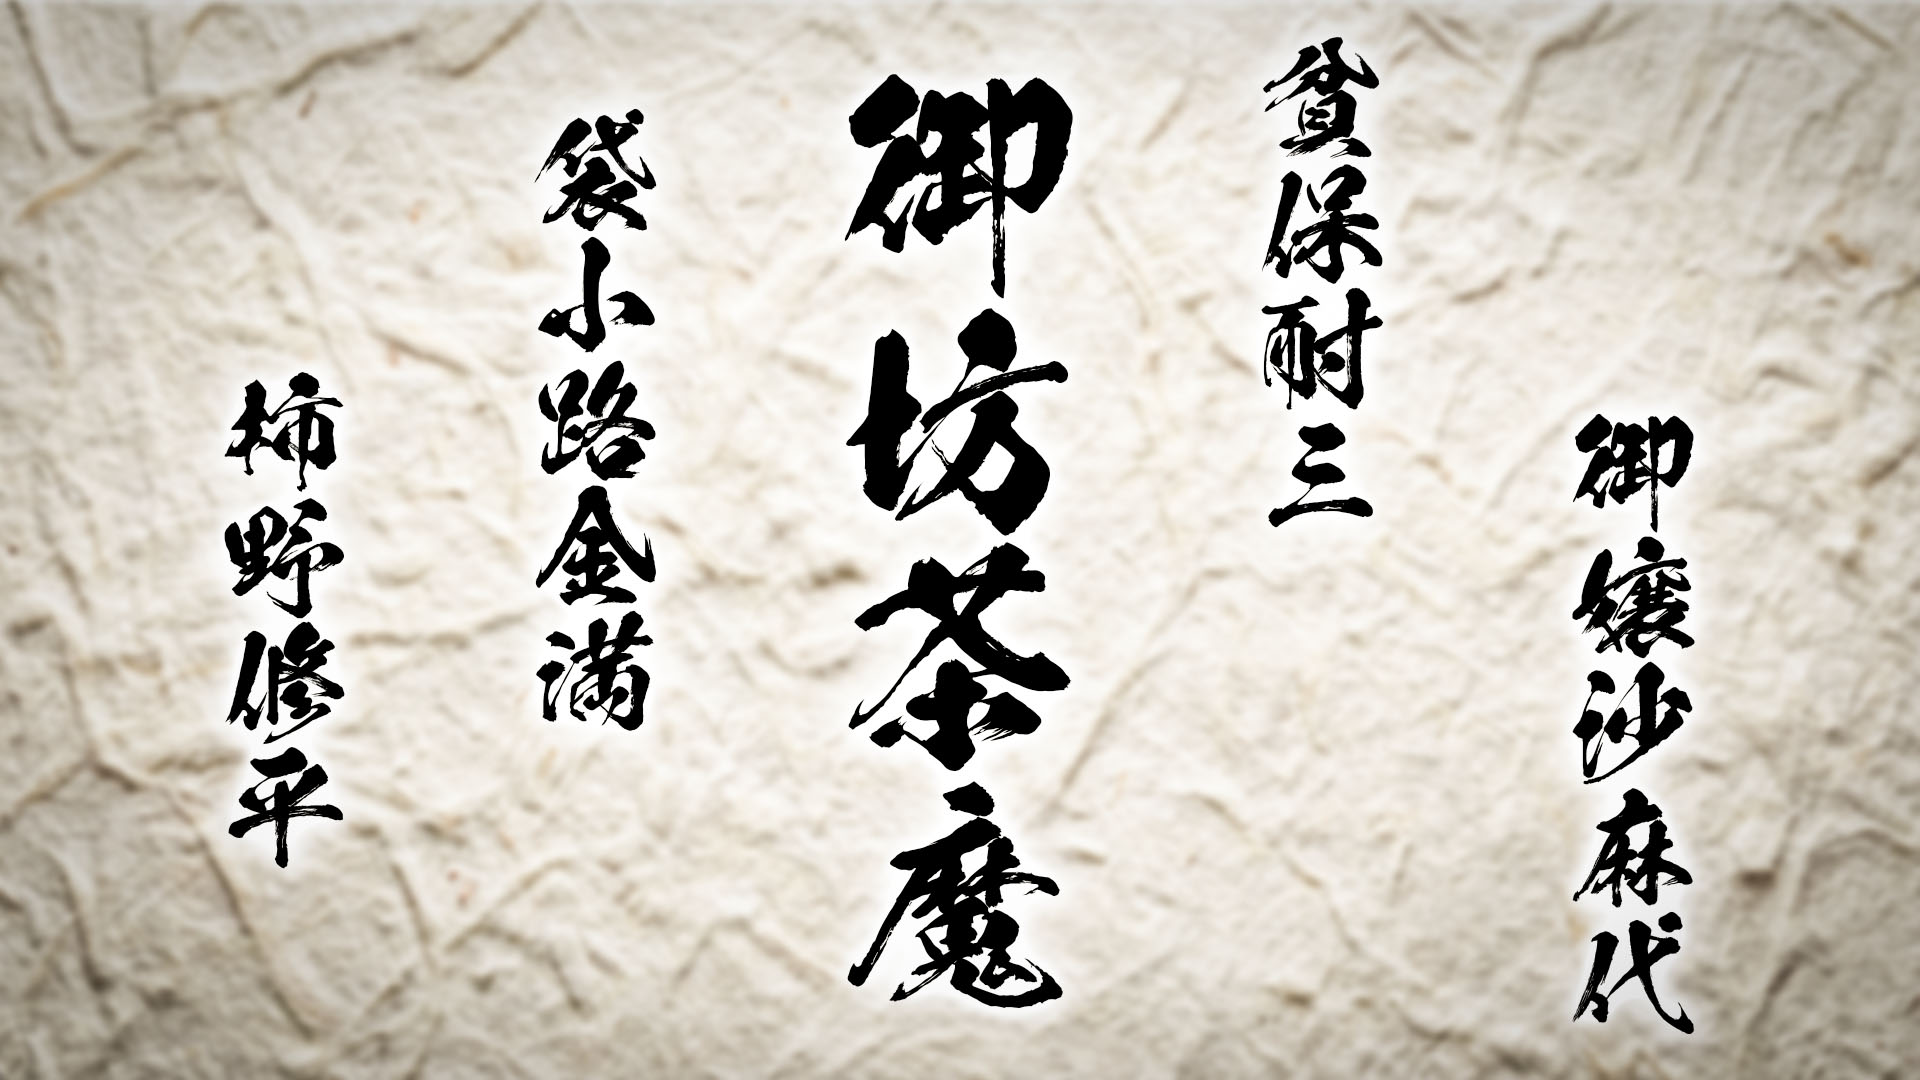 御嬢沙麻代
貧保耐三
御坊茶魔
袋小路金満
柿野修平